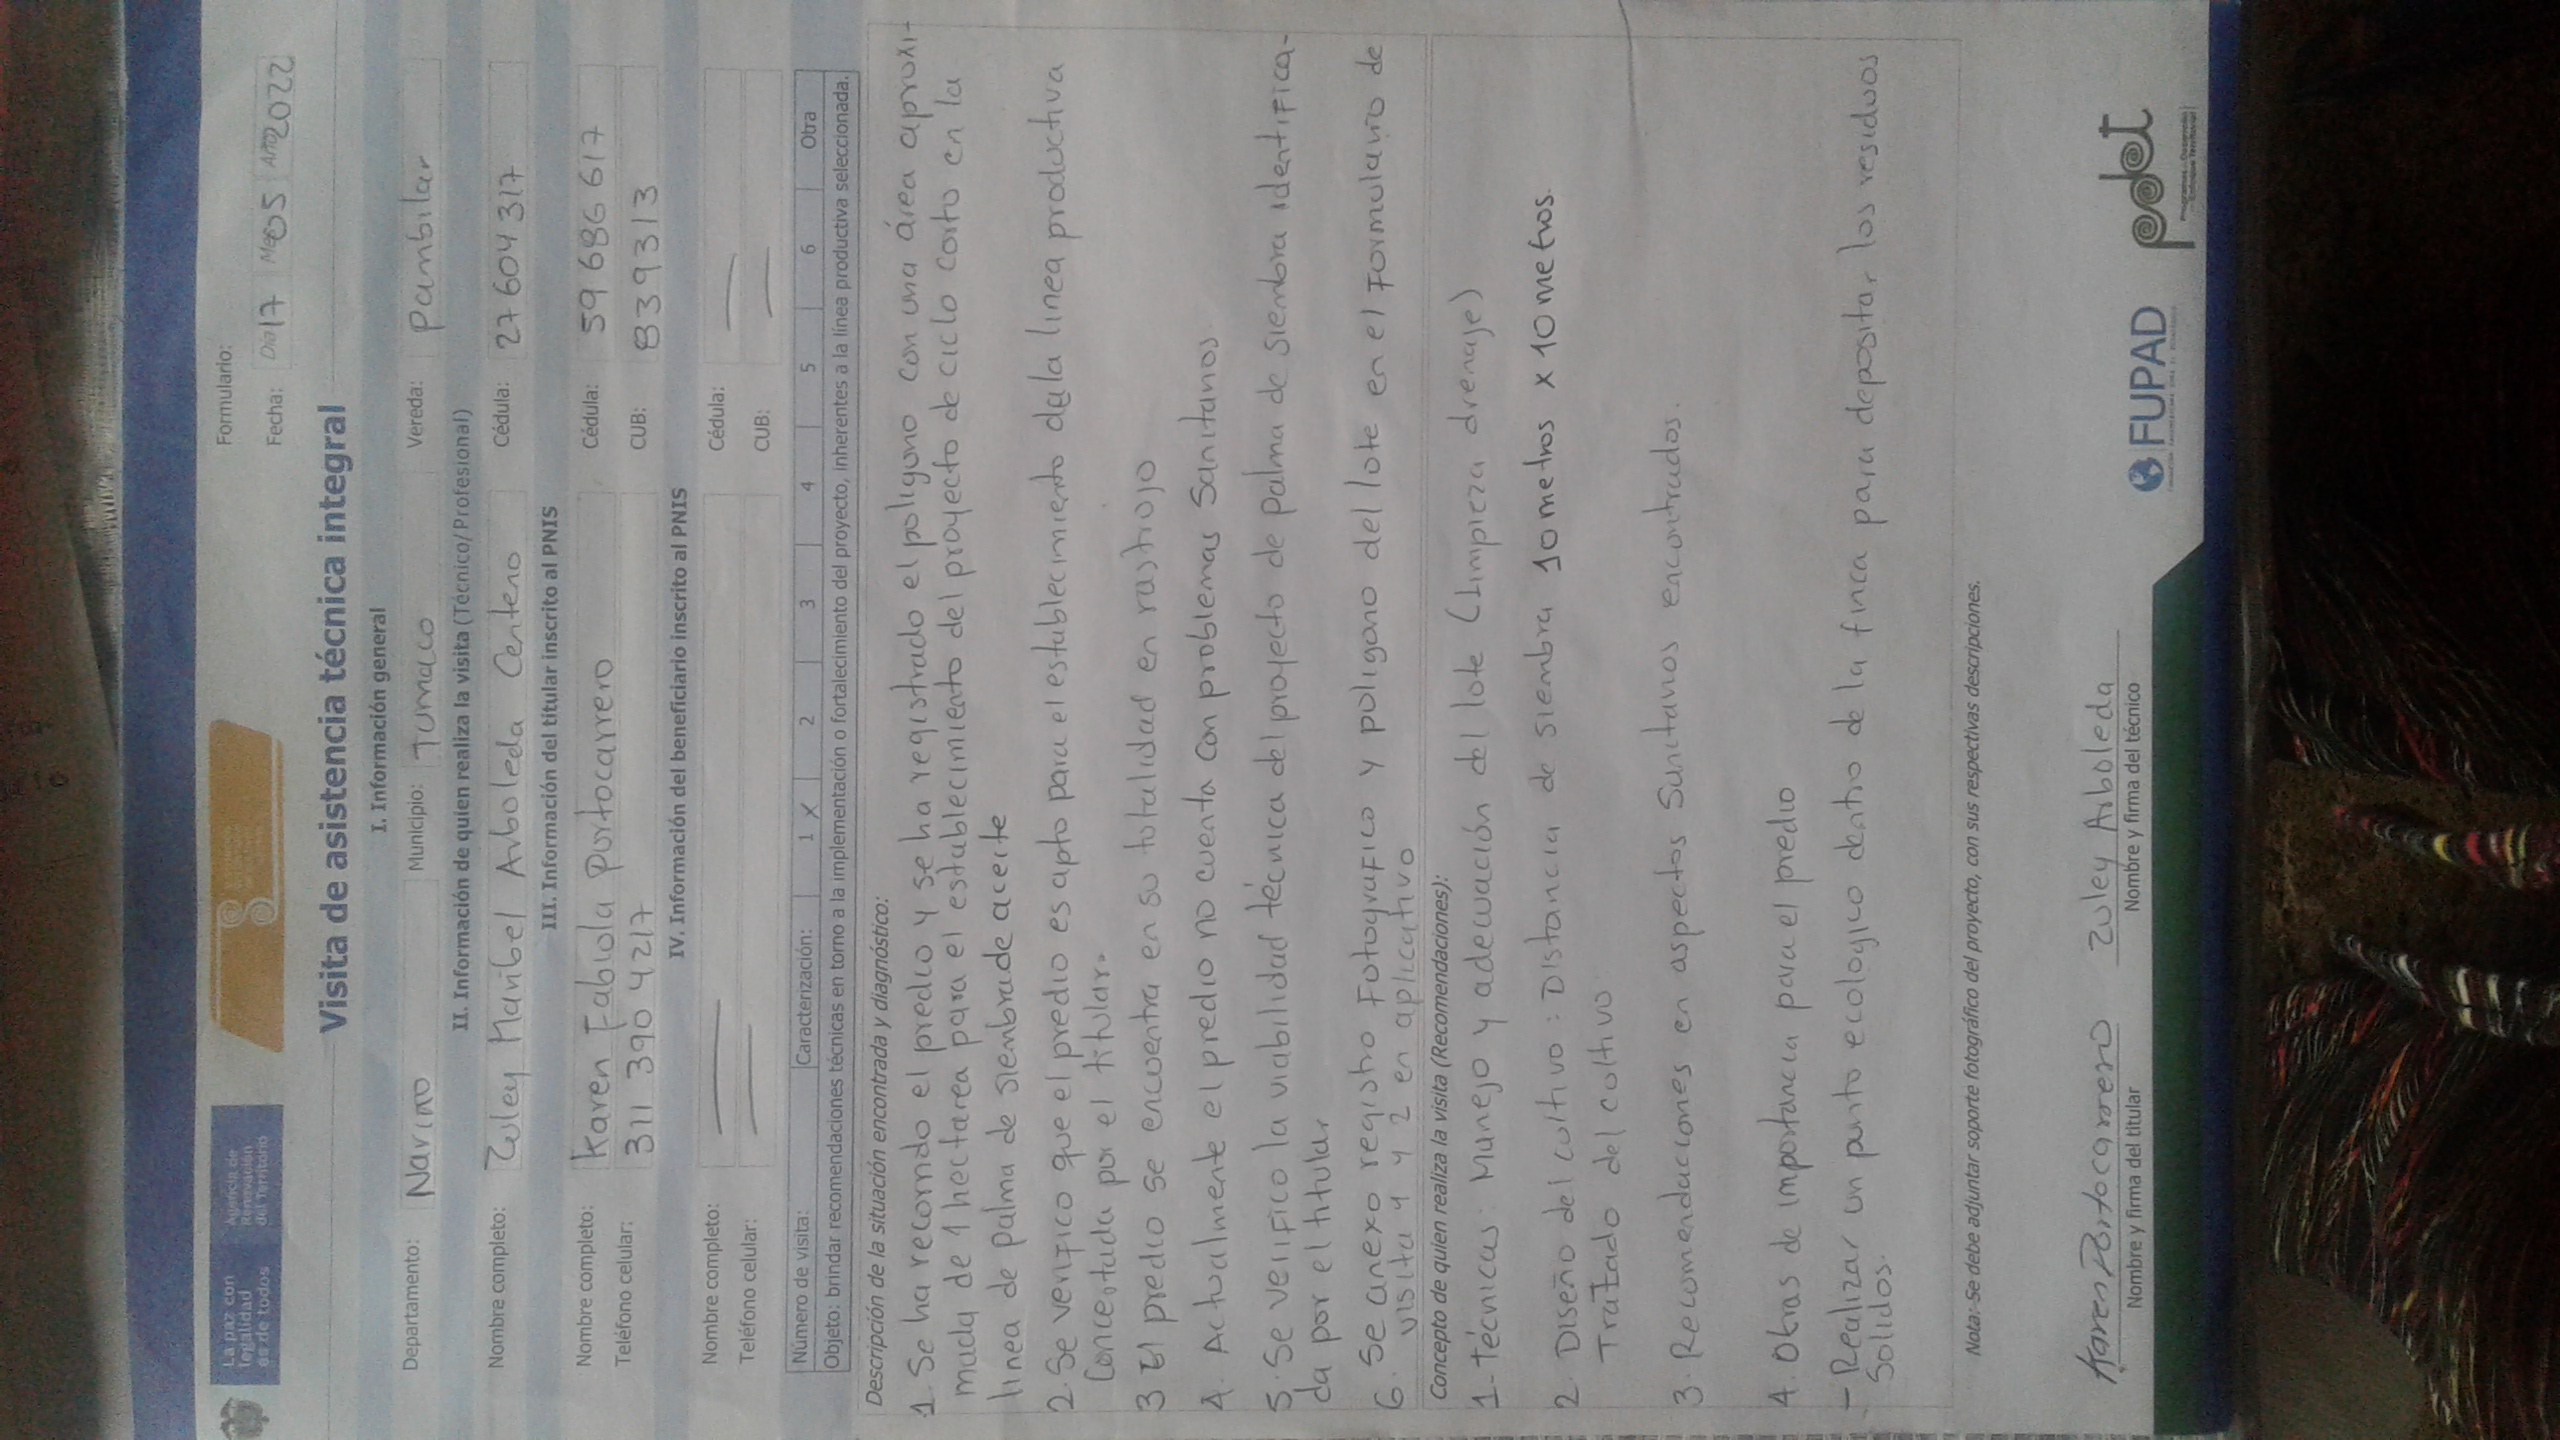 La paz con
legalidad
es de todos
Agencia de
Renovación
del Territorio
Formulario:
Fecha: Día 17 Mes 05 Año 2022
Visita de asistencia técnica integral
I. Información general
Departamento: Nariño Municipio: Tumaco Vereda: Pambilar
II. Información de quien realiza la visita (Técnico/ Profesional)
Nombre completo: Zuley Maribel Arboleda Centeno Cédula: 27604317
III. Información del titular inscrito al PNIS
Nombre completo: Karen Fabiola Portocarrero Cédula: 59686617
Teléfono celular: 311 390 4217 CUB: 839313
IV. Información del beneficiario inscrito al PNIS
Nombre completo: Cédula:
Teléfono celular: CUB:
Número de visita: Caracterización: 1 X 2 3 4 5 6 Otra
Objeto: brindar recomendaciones técnicas en torno a la implementación o fortalecimiento del proyecto, inherentes a la línea productiva seleccionada.
Descripción de la situación encontrada y diagnóstico:
1. Se ha recorrido el predio y se ha registrado el poligono con una área aproxi-
mada de 1 hectarea para el establecimiento del proyecto de ciclo corto en la
linea de palma de siembra de aceite
2. Se verifico que el predio es apto para el establecimiento de la linea productiva
Concertada por el titular.
3 El predio se encuentra en su totalidad en rastrojo
4. Actualmente el predio no cuenta con problemas Sanitarios.
5. Se verifico la viabilidad técnica del proyecto de palma de siembra identifica-
da por el titular
6. Se anexo registro Fotografico y poligono del lote en el Formulario de
visita y 2 en aplicativo
Concepto de quien realiza la visita (Recomendaciones):
1. Técnicas: Manejo y adecuación del lote (Limpieza drenaje)
2. Diseño del cultivo: Distancia de siembra 10 metros x 10 metros.
Tratado del cultivo
3. Recomendaciones en aspectos Sanitarios encontrados.
4. Obras de importancia para el predio
- Realizar un punto ecologico dentro de la finca para depositar los residuos
Solidos.
Nota: Se debe adjuntar soporte fotográfico del proyecto, con sus respectivas descripciones.
Karen Portocarrero Zuley Arboleda
Nombre y firma del titular Nombre y firma del técnico
FUPAD
pdet